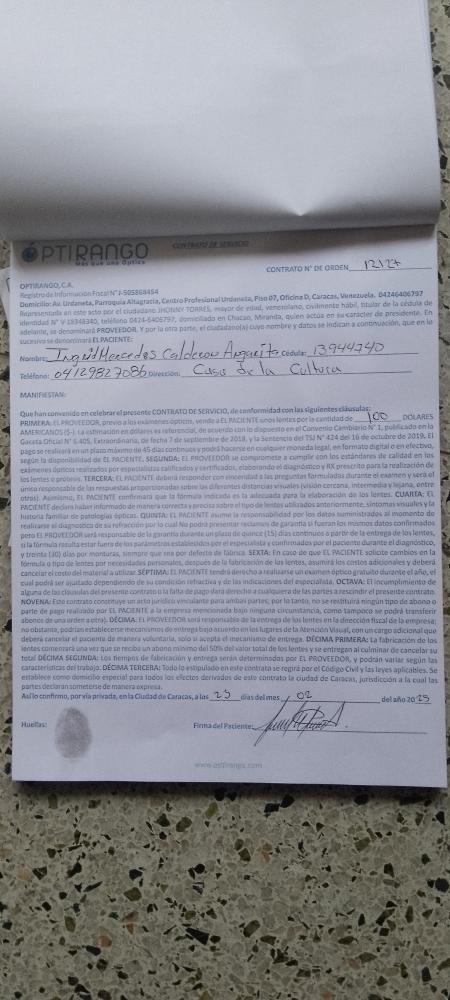 ÓPTIRANGO
Más que una Óptica
CONTRATO DE SERVICIO
CONTRATO N° DE ORDEN 12127
OPTIRANGO, C.A.
Registro de Información Fiscal N° J-505868454
Domicilio: Av. Urdaneta, Parroquia Altagracia, Centro Profesional Urdaneta, Piso 07, Oficina D, Caracas, Venezuela. 04246406797
Representada en este acto por el ciudadano JHONNY TORRES, mayor de edad, venezolano, civilmente hábil, titular de la cédula de
identidad N° V-18348340, teléfono 0424-6406797, domiciliado en Chacao, Miranda, quien actúa en su carácter de presidente. En
adelante, se denominará PROVEEDOR. Y por la otra parte, el ciudadano(a) cuyo nombre y datos se indican a continuación, que en lo
sucesivo se denominará EL PACIENTE:
Nombre: Ingrid Mercedes Calderon Cédula: 13944740
Teléfono: 04129827086 Dirección: Casa de la Cultura
MANIFIESTAN:
Que han convenido en celebrar el presente CONTRATO DE SERVICIO, de conformidad con las siguientes cláusulas:
PRIMERA: EL PROVEEDOR, previo a los exámenes ópticos, vende a EL PACIENTE unos lentes por la cantidad de 100 DÓLARES
AMERICANOS ($-). La estimación en dólares es referencial, de acuerdo con lo dispuesto en el Convenio Cambiario N° 1, publicado en la
Gaceta Oficial N° 6.405, Extraordinaria, de fecha 7 de septiembre de 2018, y la Sentencia del TSJ N° 424 del 16 de octubre de 2019. El
pago se realizará en un plazo máximo de 45 días continuos y podrá hacerse en cualquier moneda legal, en formato digital o en efectivo,
según la disponibilidad de EL PACIENTE. SEGUNDA: EL PROVEEDOR se compromete a cumplir con los estándares de calidad en los
exámenes ópticos realizados por especialistas calificados y certificados, elaborando el diagnóstico y RX prescrito para la realización de
los lentes o prótesis. TERCERA: EL PACIENTE deberá responder con sinceridad a las preguntas formuladas durante el examen y será el
único responsable de las respuestas proporcionadas sobre las diferentes distancias visuales (visión cercana, intermedia y lejana, entre
otros). Asimismo, EL PACIENTE confirmará que la fórmula indicada es la adecuada para la elaboración de los lentes. CUARTA: EL
PACIENTE declara haber informado de manera correcta y precisa sobre el tipo de lentes utilizados anteriormente, síntomas visuales y la
historia familiar de patologías ópticas. QUINTA: EL PACIENTE asume la responsabilidad por los datos suministrados al momento de
realizarse el diagnostico de su refracción por lo cual No podrá presentar reclamos de garantía si fueran los mismos datos confirmados
pero EL PROVEEDOR será responsable de la garantía durante un plazo de quince (15) días continuos a partir de la entrega de los lentes,
si la fórmula resulta estar fuera de los parámetros establecidos por el especialista y confirmados por el paciente durante el diagnóstico,
y treinta (30) días por monturas, siempre que sea por defecto de fábrica. SEXTA: En caso de que EL PACIENTE solicite cambios en la
fórmula o tipo de lentes por necesidades personales, después de la fabricación de los lentes, asumirá los costos adicionales y deberá
cancelar el costo del material a utilizar. SÉPTIMA: EL PACIENTE tendrá derecho a realizarse un examen óptico gratuito durante el año, el
cual podrá ser ajustado dependiendo de su condición refractiva y de las indicaciones del especialista. OCTAVA: El incumplimiento de
alguna de las cláusulas del presente contrato o la falta de pago dará derecho a cualquiera de las partes a rescindir el presente contrato.
NOVENA: Este contrato constituye un acto jurídico vinculante para ambas partes; por lo tanto, no se restituirá ningún tipo de abono o
parte de pago realizado por EL PACIENTE a la empresa mencionada bajo ninguna circunstancia, como tampoco se podrá transferir
abonos de una orden a otra). DÉCIMA: EL PROVEEDOR será responsable de la entrega de los lentes en la dirección fiscal de la empresa;
no obstante, podrían establecerse mecanismos de entrega bajo acuerdo en los lugares de la Atención Visual, con un cargo adicional que
deberá cancelar el paciente de manera voluntaria, solo si acepta el mecanismo de entrega. DÉCIMA PRIMERA: La fabricación de los
lentes comenzará una vez que se reciba un abono mínimo del 50% del valor total de los lentes y se entregan al culminar de cancelar su
total DÉCIMA SEGUNDA: Los tiempos de fabricación y entrega serán determinados por EL PROVEEDOR, y podrán variar según las
características del trabajo. DÉCIMA TERCERA: Todo lo estipulado en este contrato se regirá por el Código Civil y las leyes aplicables. Se
establece como domicilio especial para todos los efectos derivados de este contrato la ciudad de Caracas, jurisdicción a la cual las
partes declaran someterse de manera expresa.
Así lo confirmo, por vía privada, en la Ciudad de Caracas, a los 25 días del mes 02 del año 2025
Huellas:
Firma del Paciente:
www.optirango.com